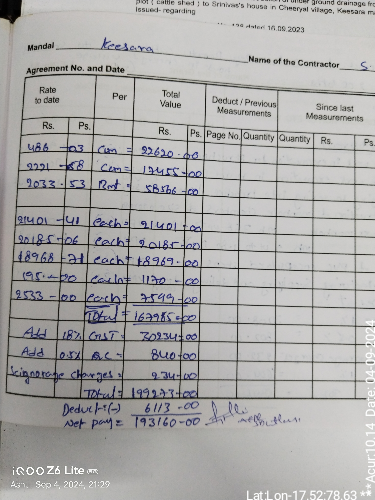 under ground drainage fr
plot ( cattle shed ) to Srinivas's house in Cheeryal village, Keesara m
Issued- regarding
dated 16.09.2023
Mandal Keesara
Name of the Contractor S.
Agreement No. and Date
Rate to date Per Total Value Deduct / Previous Measurements Since last Measurements
Rs. Ps. Rs. Ps. Page No. Quantity Quantity Rs. Ps.
486 - 03 Cum = 22620 - 00
2221 - 68 Cum = 12455 - 00
2033 - 53 Rmt = 58566 - 00
21401 - 41 each = 21401 - 00
20185 - 06 each = 20185 - 00
18968 - 71 each = 18969 - 00
195 - 00 each = 1170 - 00
2533 - 00 each = 7599 - 00
Total = 167985 = 00
Add 18% GST = 30234 - 00
Add 0.5% = 840 - 00
Seignorage charges = 234 - 00
Total = 199273 = 00
Deduct (-) 6113 - 00
Net pay = 193160 - 00
iQOO Z6 Lite
Sep 4, 2024, 21:29
Lat:Lon-17.52:78.63
**Acur:10.14 Date:04-09-2024